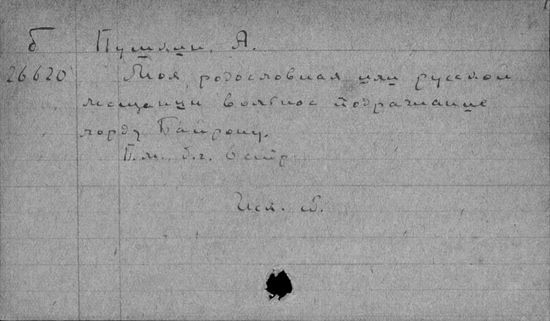 б Пушкин, А.
26620 Моя родословная или русской
мещанин вольное подражание
лорду Байрону.
Б.м. б.г. 6 стр